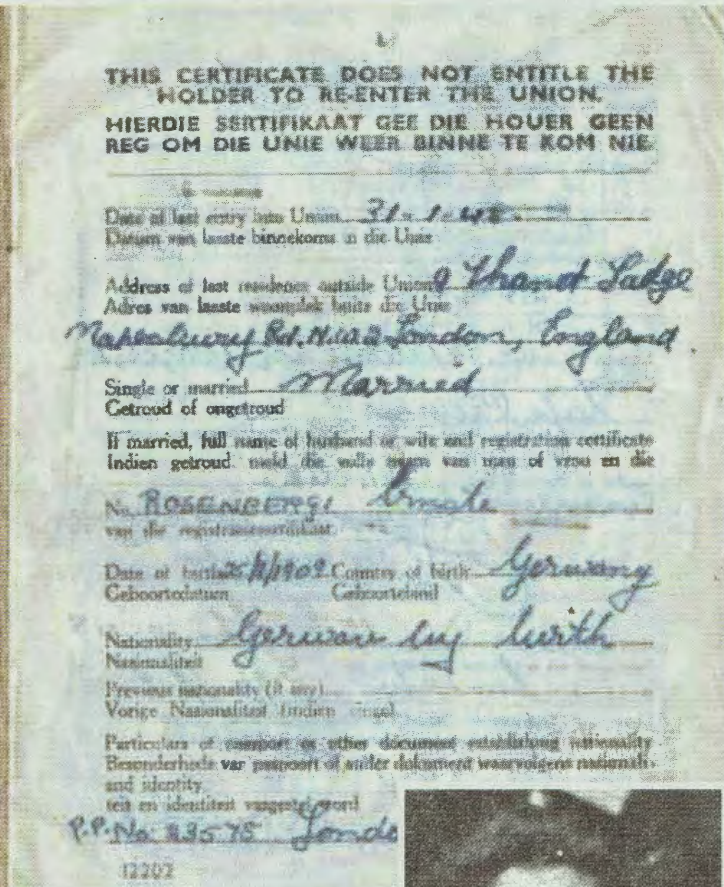 THIS CERTIFICATE DOES NOT ENTITLE THE
HOLDER TO RE-ENTER THE UNION.
HIERDIE SERTIFIKAAT GEE DIE HOUER GEEN
REG OM DIE UNIE WEER BINNE TE KOM NIE.
Date of last entry into Union 31-1-48
Datum van laaste binnekoms in die Unie
Address of last residence outside Union 9
Adres van laaste woonplek buite die Unie
Rd. N.W.2 London, England
Single or married Married
Getroud of ongetroud
If married, full name of husband or wife and registration certificate
Indien getroud, meld die volle naam van man of vrou en die
No. ROSENBERG,
van die registrasiesertifikaat
Date of birth /1909 Country of birth Germany
Geboortedatum Geboorteland
Nationality German by birth
Nasionaliteit
Previous nationality (if any)
Vorige Nasionaliteit (indien enige)
Particulars of passport or other document establishing nationality
Besonderhede van paspoort of ander dokument waarvolgens nasionali-
and identity
teit en identiteit vasgestel word
P.P. No. 23575
12202